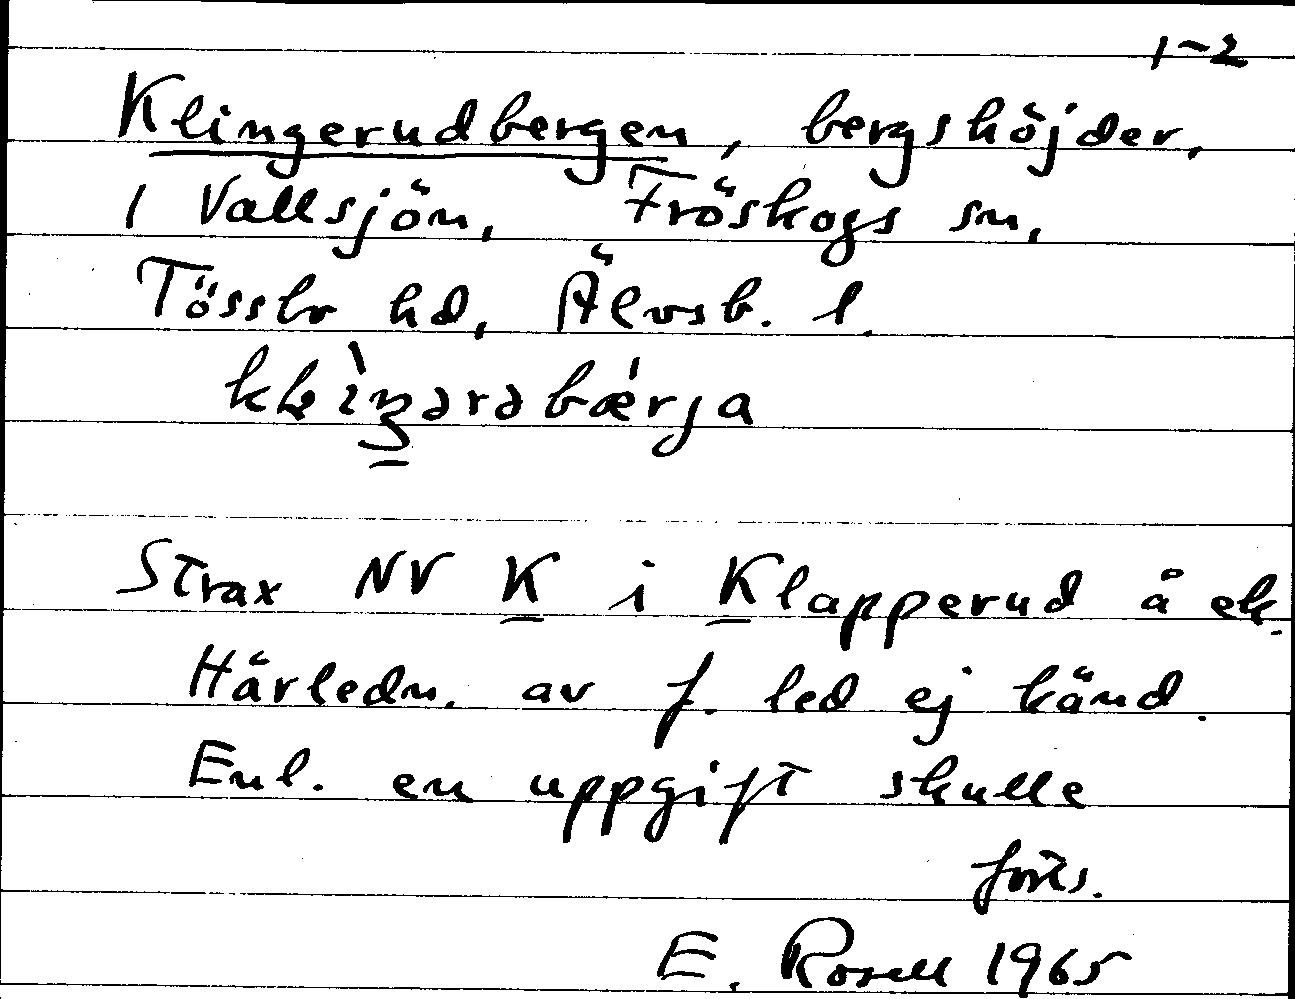 1-2
Klingerudbergen, bergshöjder,
i Vallsjön, Fröskogs sn,
Tössbo hd, Älvsb. l.
Strax NV K i Klapperud å ek.
Härledn. av f. led ej känd.
Enl. en uppgift skulle
forts.
E. Rosell 1965